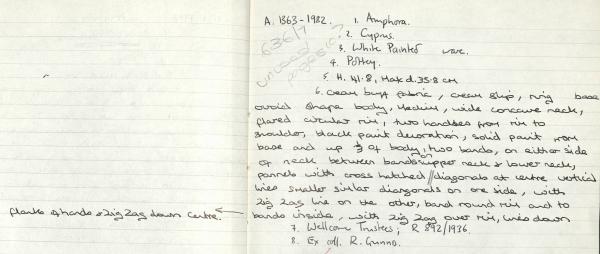 A. 1363-1982. 1. Amphora.
2. Cyprus.
3. White Painted ware.
4. Pottery.
5. H. 41.8, Max d. 35.8 cm
6. Cream buff fabric, cream slip, ring base
ovoid shape body, medium, wide concave neck,
flared circular rim, two handles from rim to
shoulder, black paint decoration, solid paint from
base and up ⅓ of body, two bands, on either side
of neck between bands on upper neck & lower neck,
pannels with cross hatched // diagonals at centre vertical
lines smaller similar diagonals on one side, with
zig zag line on the other, band round rim and to
bands inside, with zig zag over rim, lines down
flanks of hands & zig zag down centre.
7. Wellcome Trustees; R 892/1936.
8. Ex coll. R. Gunnis.
636/7